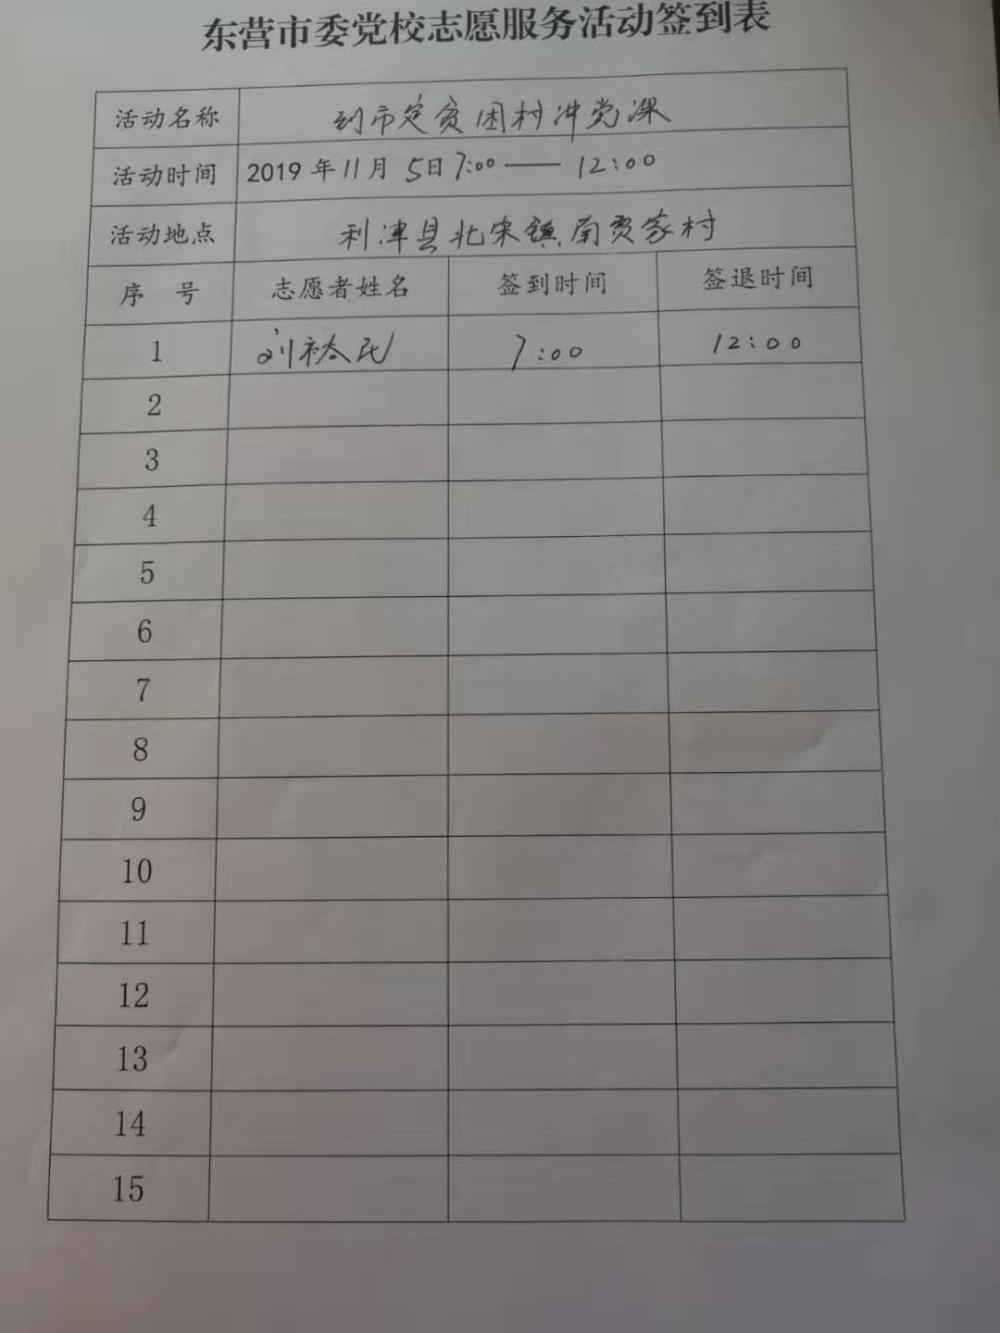 东营市委党校志愿服务活动签到表
活动名称 到市定贫困村冲党课
活动时间 2019年11月5日7:00——12:00
活动地点 利津县北宋镇南贾家村
序号 志愿者姓名 签到时间 签退时间
1 刘 民 7:00 12:00
2
3
4
5
6
7
8
9
10
11
12
13
14
15